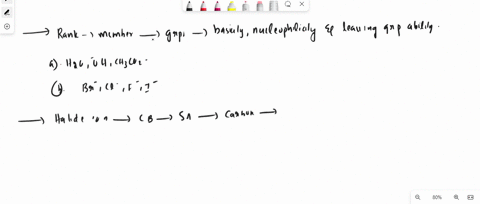 → Rank → member → grps → basicity, nucleophilicity & leaving grp ability.
a) H2O, ⁻OH, CH3CO2⁻
b) Br⁻, Cl⁻, F⁻, I⁻
→ Halide ion → CB → SA → Carbon →
80%